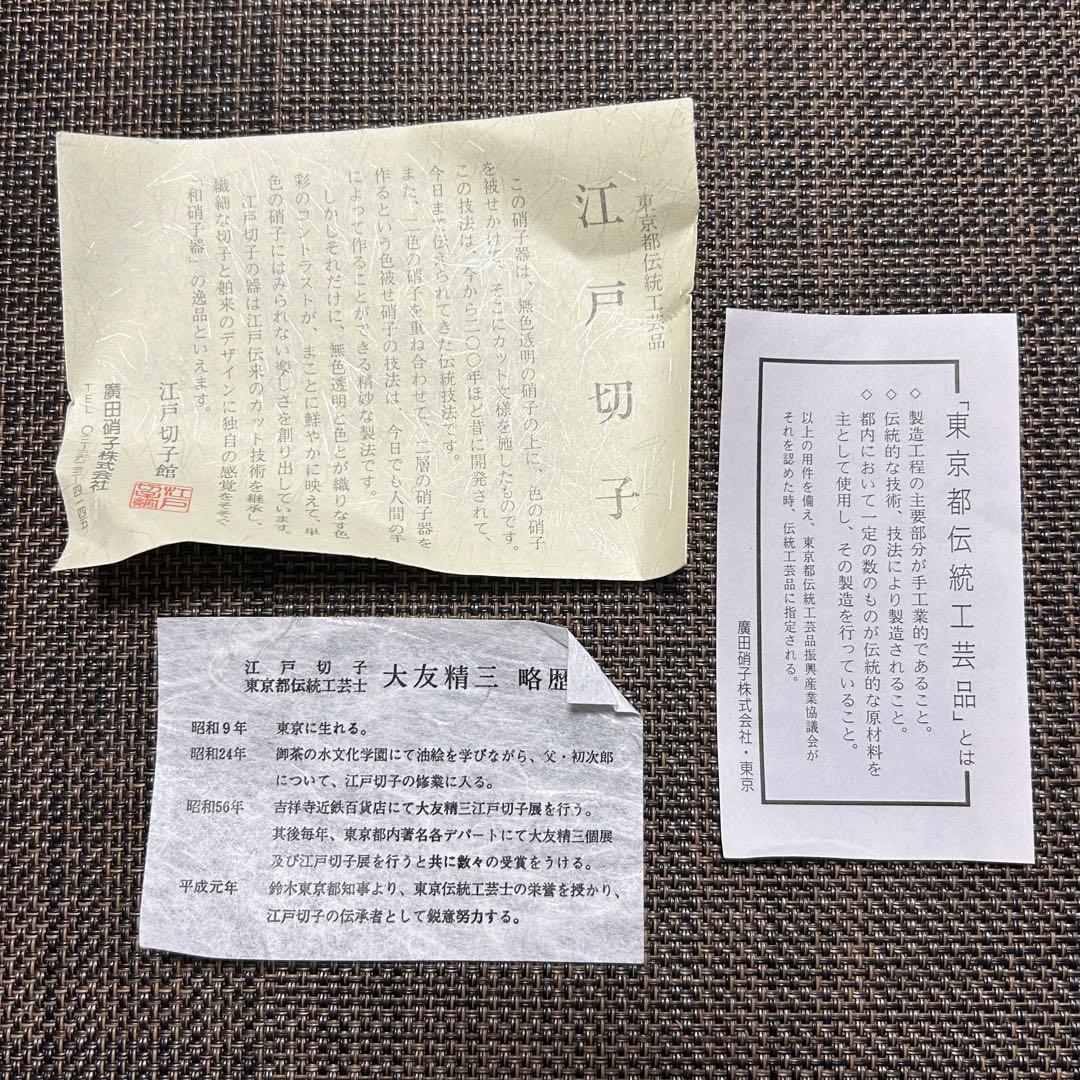 東京都伝統工芸品
江戸切子
この硝子器は、無色透明の硝子の上に、色の硝子
を被せかけて、そこにカット文様を施したものです。
この技法は、今から二〇〇年ほど昔に開発されて、
今日まで伝えられてきた伝統技法です。
また、二色の硝子を重ね合わせて、二層の硝子器を
作るという色被せ硝子の技法は、今日でも人間の手
によって作ることができる精妙な製法です。
しかしそれだけに、無色透明と色とが織りなす色
彩のコントラストが、まことに鮮やかに映えて、単
色の硝子にはみられない楽しさを創り出しています。
江戸切子の器は江戸伝来のカット技術を継承し、
繊細な切子と舶来のデザインに独自の感覚をそそぐ、
「和硝子器」の逸品といえます。
江戸切子館
廣田硝子株式会社
TEL
「東京都伝統工芸品」とは
◇製造工程の主要部分が手工業的であること。
◇伝統的な技術、技法により製造されること。
◇都内において一定の数のものが伝統的な原材料を
主として使用し、その製造を行っていること。
以上の用件を備え、東京都伝統工芸品振興産業協議会が
それを認めた時、伝統工芸品に指定される。
廣田硝子株式会社・東京
江戸切子
東京都伝統工芸士 大友精三 略歴
昭和9年 東京に生れる。
昭和24年 御茶の水文化学園にて油絵を学びながら、父・初次郎
について、江戸切子の修業に入る。
昭和56年 吉祥寺近鉄百貨店にて大友精三江戸切子展を行う。
其後毎年、東京都内著名各デパートにて大友精三個展
及び江戸切子展を行うと共に数々の受賞をうける。
平成元年 鈴木東京都知事より、東京伝統工芸士の栄誉を授かり、
江戸切子の伝承者として鋭意努力する。